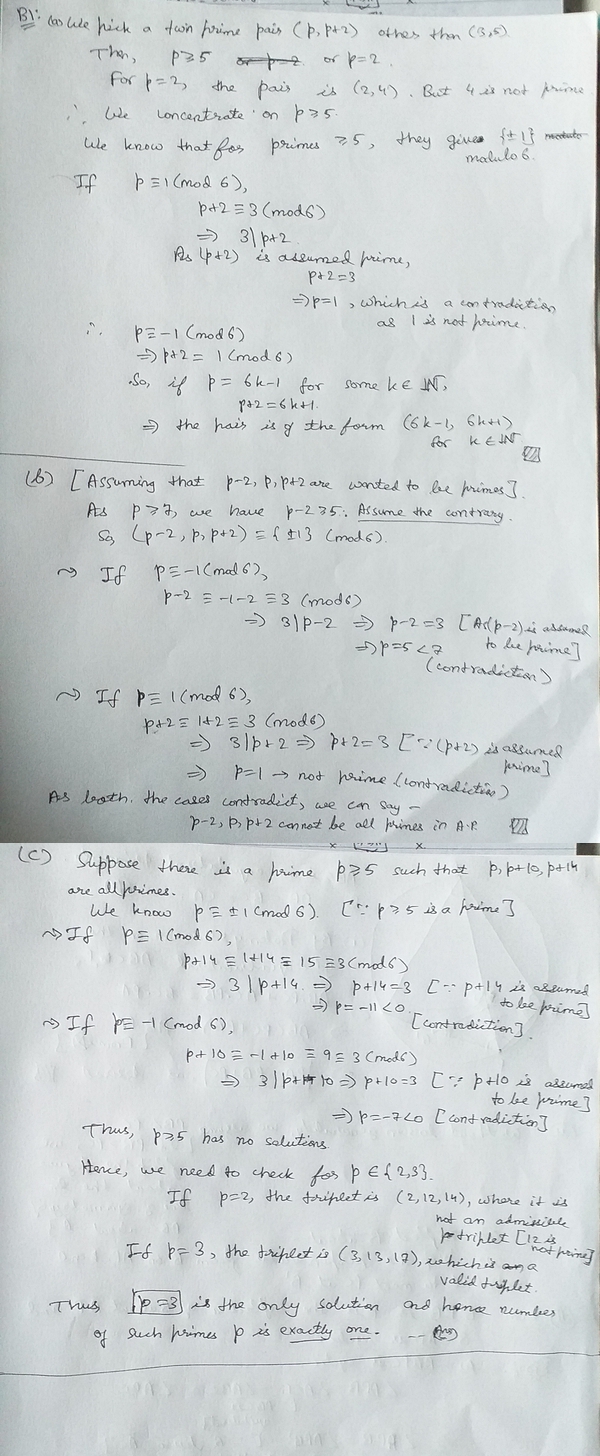 B1: (a) We pick a twin prime pair (p, p+2) other than (3,5).
Then, p≥5 or p=2 or p=2.
For p=2, the pair is (2,4). But 4 is not prime.
∴ We concentrate on p≥5.
We know that for primes ≥5, they give {±1} modulo
modulo 6.
If p≡1(mod 6),
p+2≡3(mod 6)
⇒ 3|p+2
As (p+2) is assumed prime,
p+2=3
⇒p=1, which is a contradiction
as 1 is not prime.
∴ p≡-1(mod 6)
⇒p+2≡ 1(mod 6)
So, if p = 6k-1 for some k∈ℕ,
p+2=6k+1.
⇒ the pair is of the form (6k-1, 6k+1)
for k∈ℕ
(b) [Assuming that p-2, p, p+2 are wanted to be primes].
As p≥7, we have p-2≥5. Assume the contrary.
So, (p-2, p, p+2) ≡ {±1} (mod 6).
⇝ If p≡-1(mod 6),
p-2 ≡ -1-2 ≡3 (mod 6)
⇒ 3|p-2 ⇒ p-2=3 [As (p-2) is assumed
to be prime]
⇒p=5<7
(contradiction)
⇝ If p≡ 1(mod 6),
p+2≡ 1+2≡ 3 (mod 6)
⇒ 3|p+2 ⇒ p+2=3 [∵ (p+2) is assumed
prime]
⇒ p=1 → not prime (contradiction)
As both the cases contradict, we can say –
p-2, p, p+2 cannot be all primes in A.P.
(c) Suppose there is a prime p≥5 such that p, p+10, p+14
are all primes.
We know p≡ ±1(mod 6). [∵ p≥5 is a prime]
⇝If p≡1(mod 6),
p+14≡ 1+14≡ 15≡3(mod 6)
⇒ 3|p+14. ⇒ p+14=3 [∵ p+14 is assumed
to be prime]
⇒ p=-11<0.
[contradiction].
⇝ If p≡ -1(mod 6),
p+10≡-1+10 ≡9≡ 3 (mod 6)
⇒ 3|p+10 ⇒ p+10=3 [∵ p+10 is assumed
to be prime]
⇒p=-7<0 [contradiction]
Thus, p≥5 has no solutions.
Hence, we need to check for p∈{2,3}.
If p=2, the triplet is (2,12,14), where it is
not an admissible
triplet [12 is
not prime]
If p=3, the triplet is (3,13,17), which is a
valid triplet.
Thus p=3 is the only solution and hence number
of such primes p is exactly one. — (Ans)